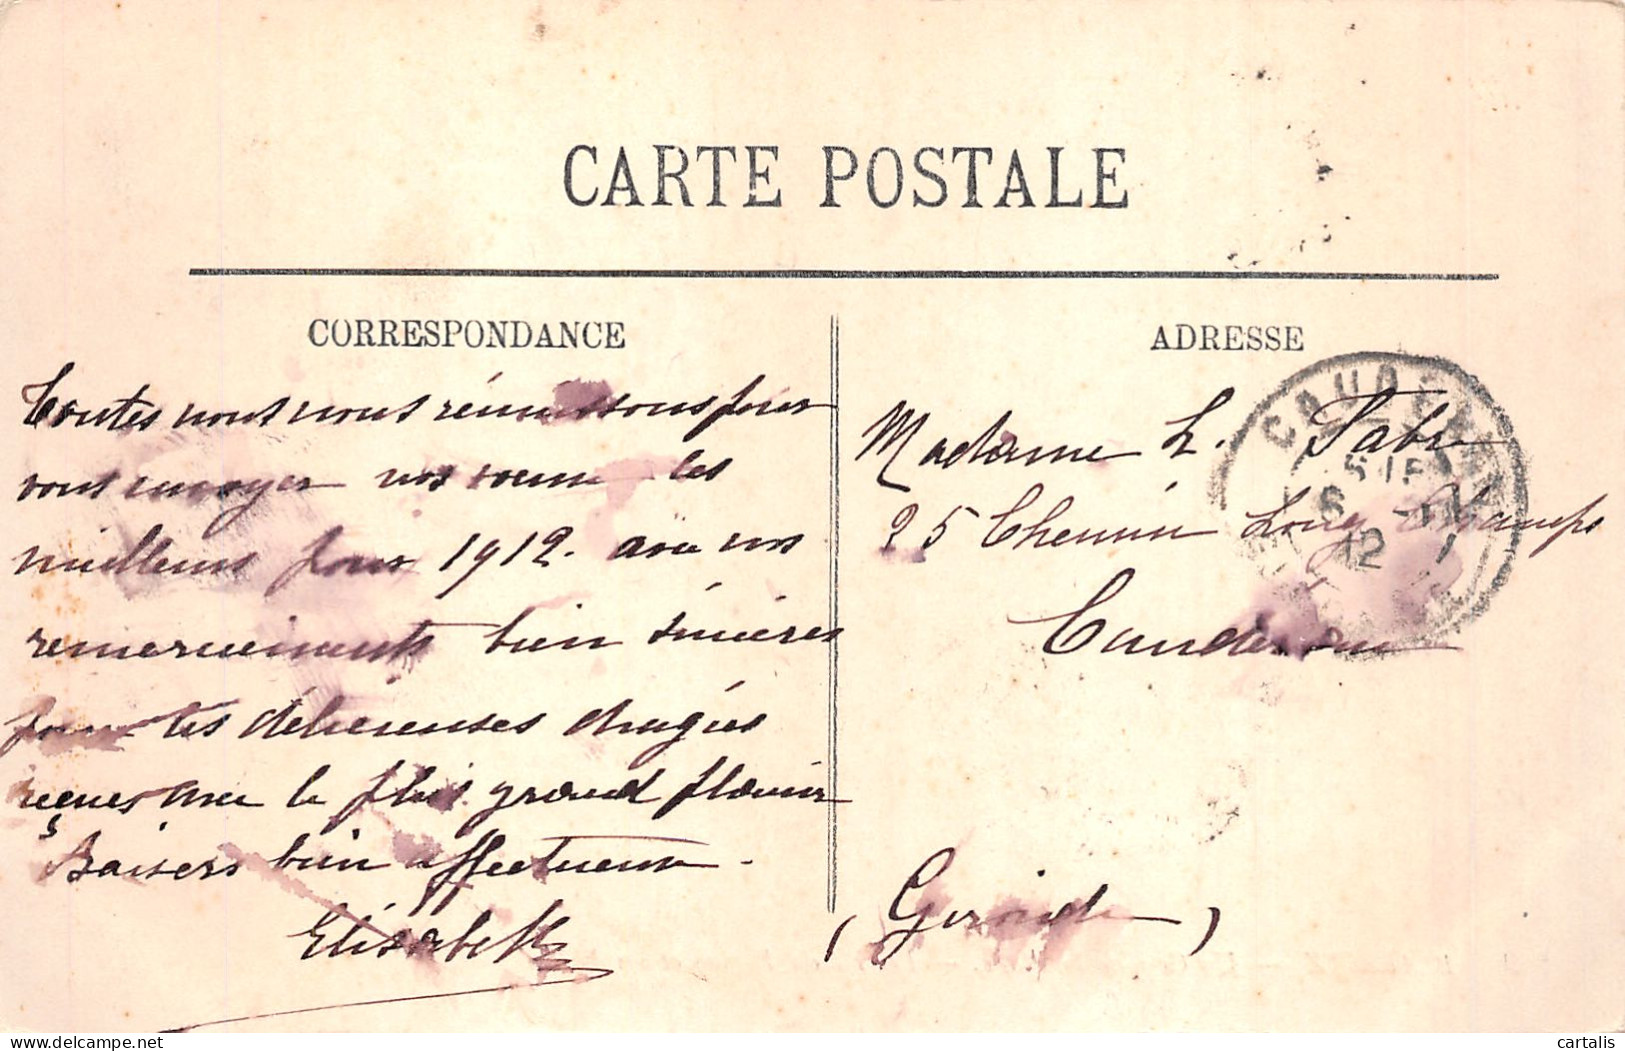 CARTE POSTALE
CORRESPONDANCE
Toutes nous nous réunissons pour
vous envoyer nos voeux les
meilleurs pour 1912. avec nos
remerciements bien sincères
pour les délicieuses dragées
reçues avec le plus grand plaisir
Baisers bien affectueux.
Elisabeth
ADRESSE
Madame L. Fabre
25 Chemin Long Champs
Caudéran
(Gironde)
CAUDERAN
cartalis
delcampe.net